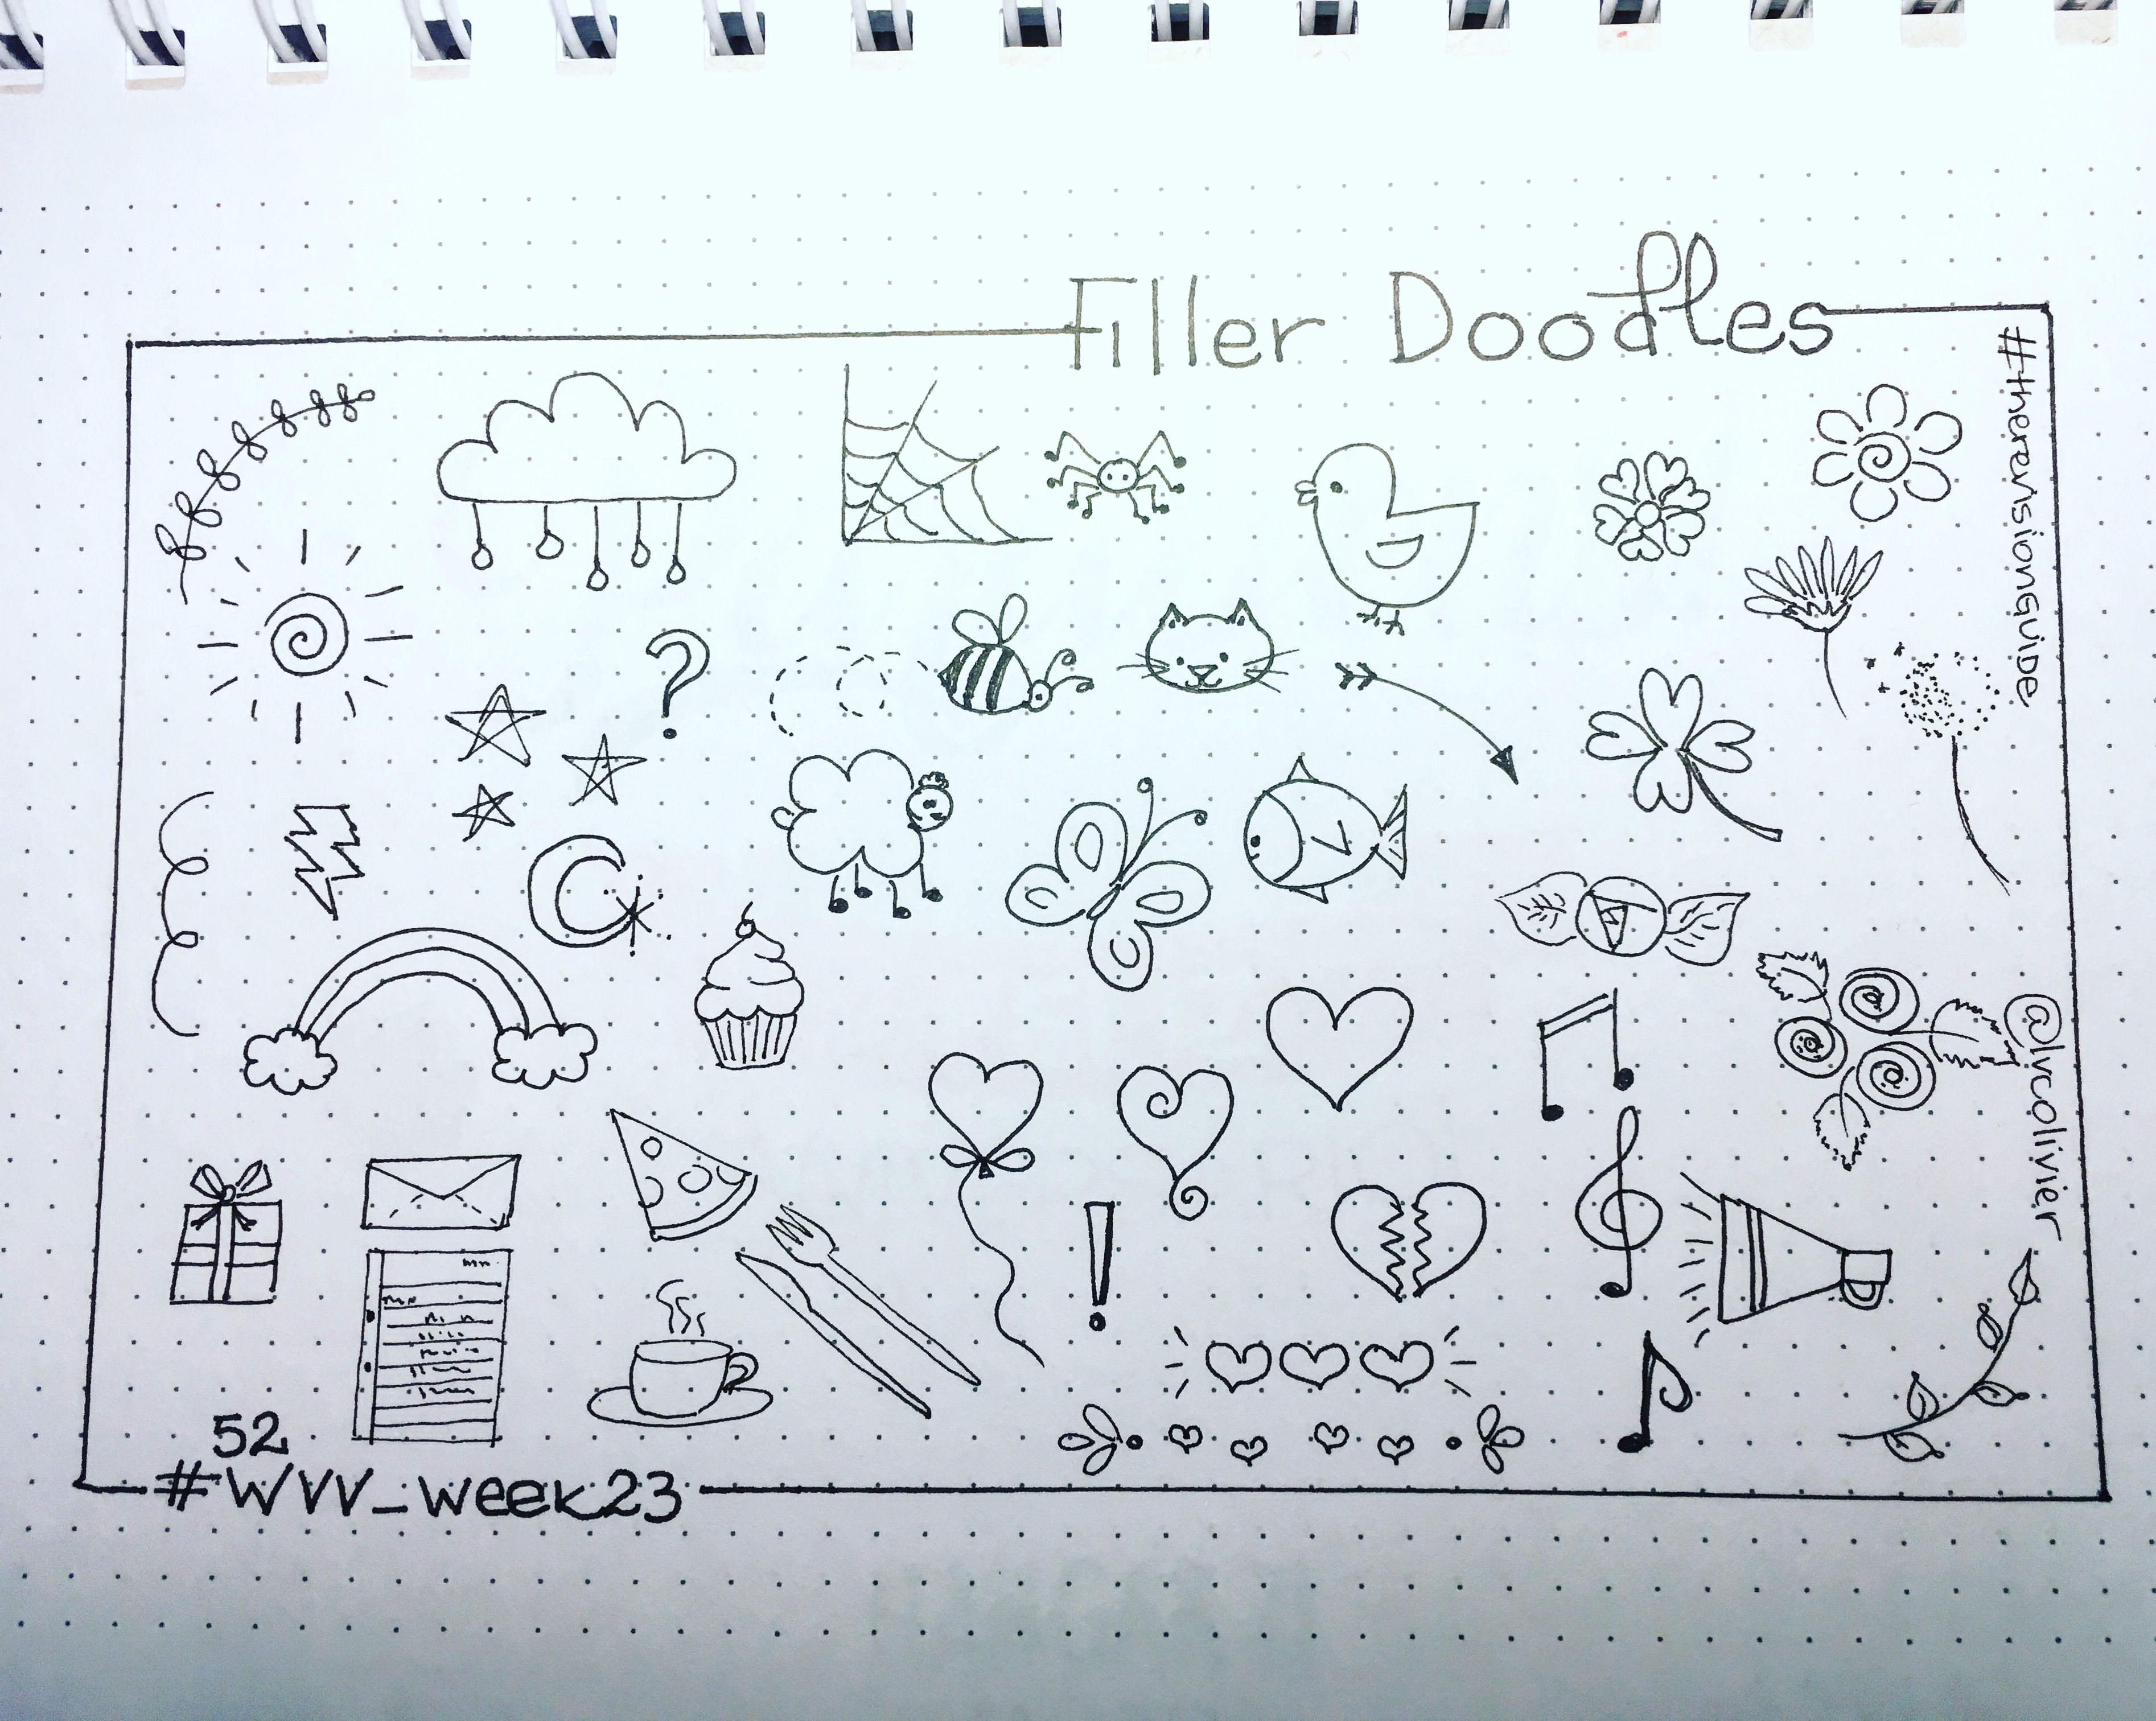 Filler Doodles
#therevisionguide
@lvcolivier
52
#WVV_week23